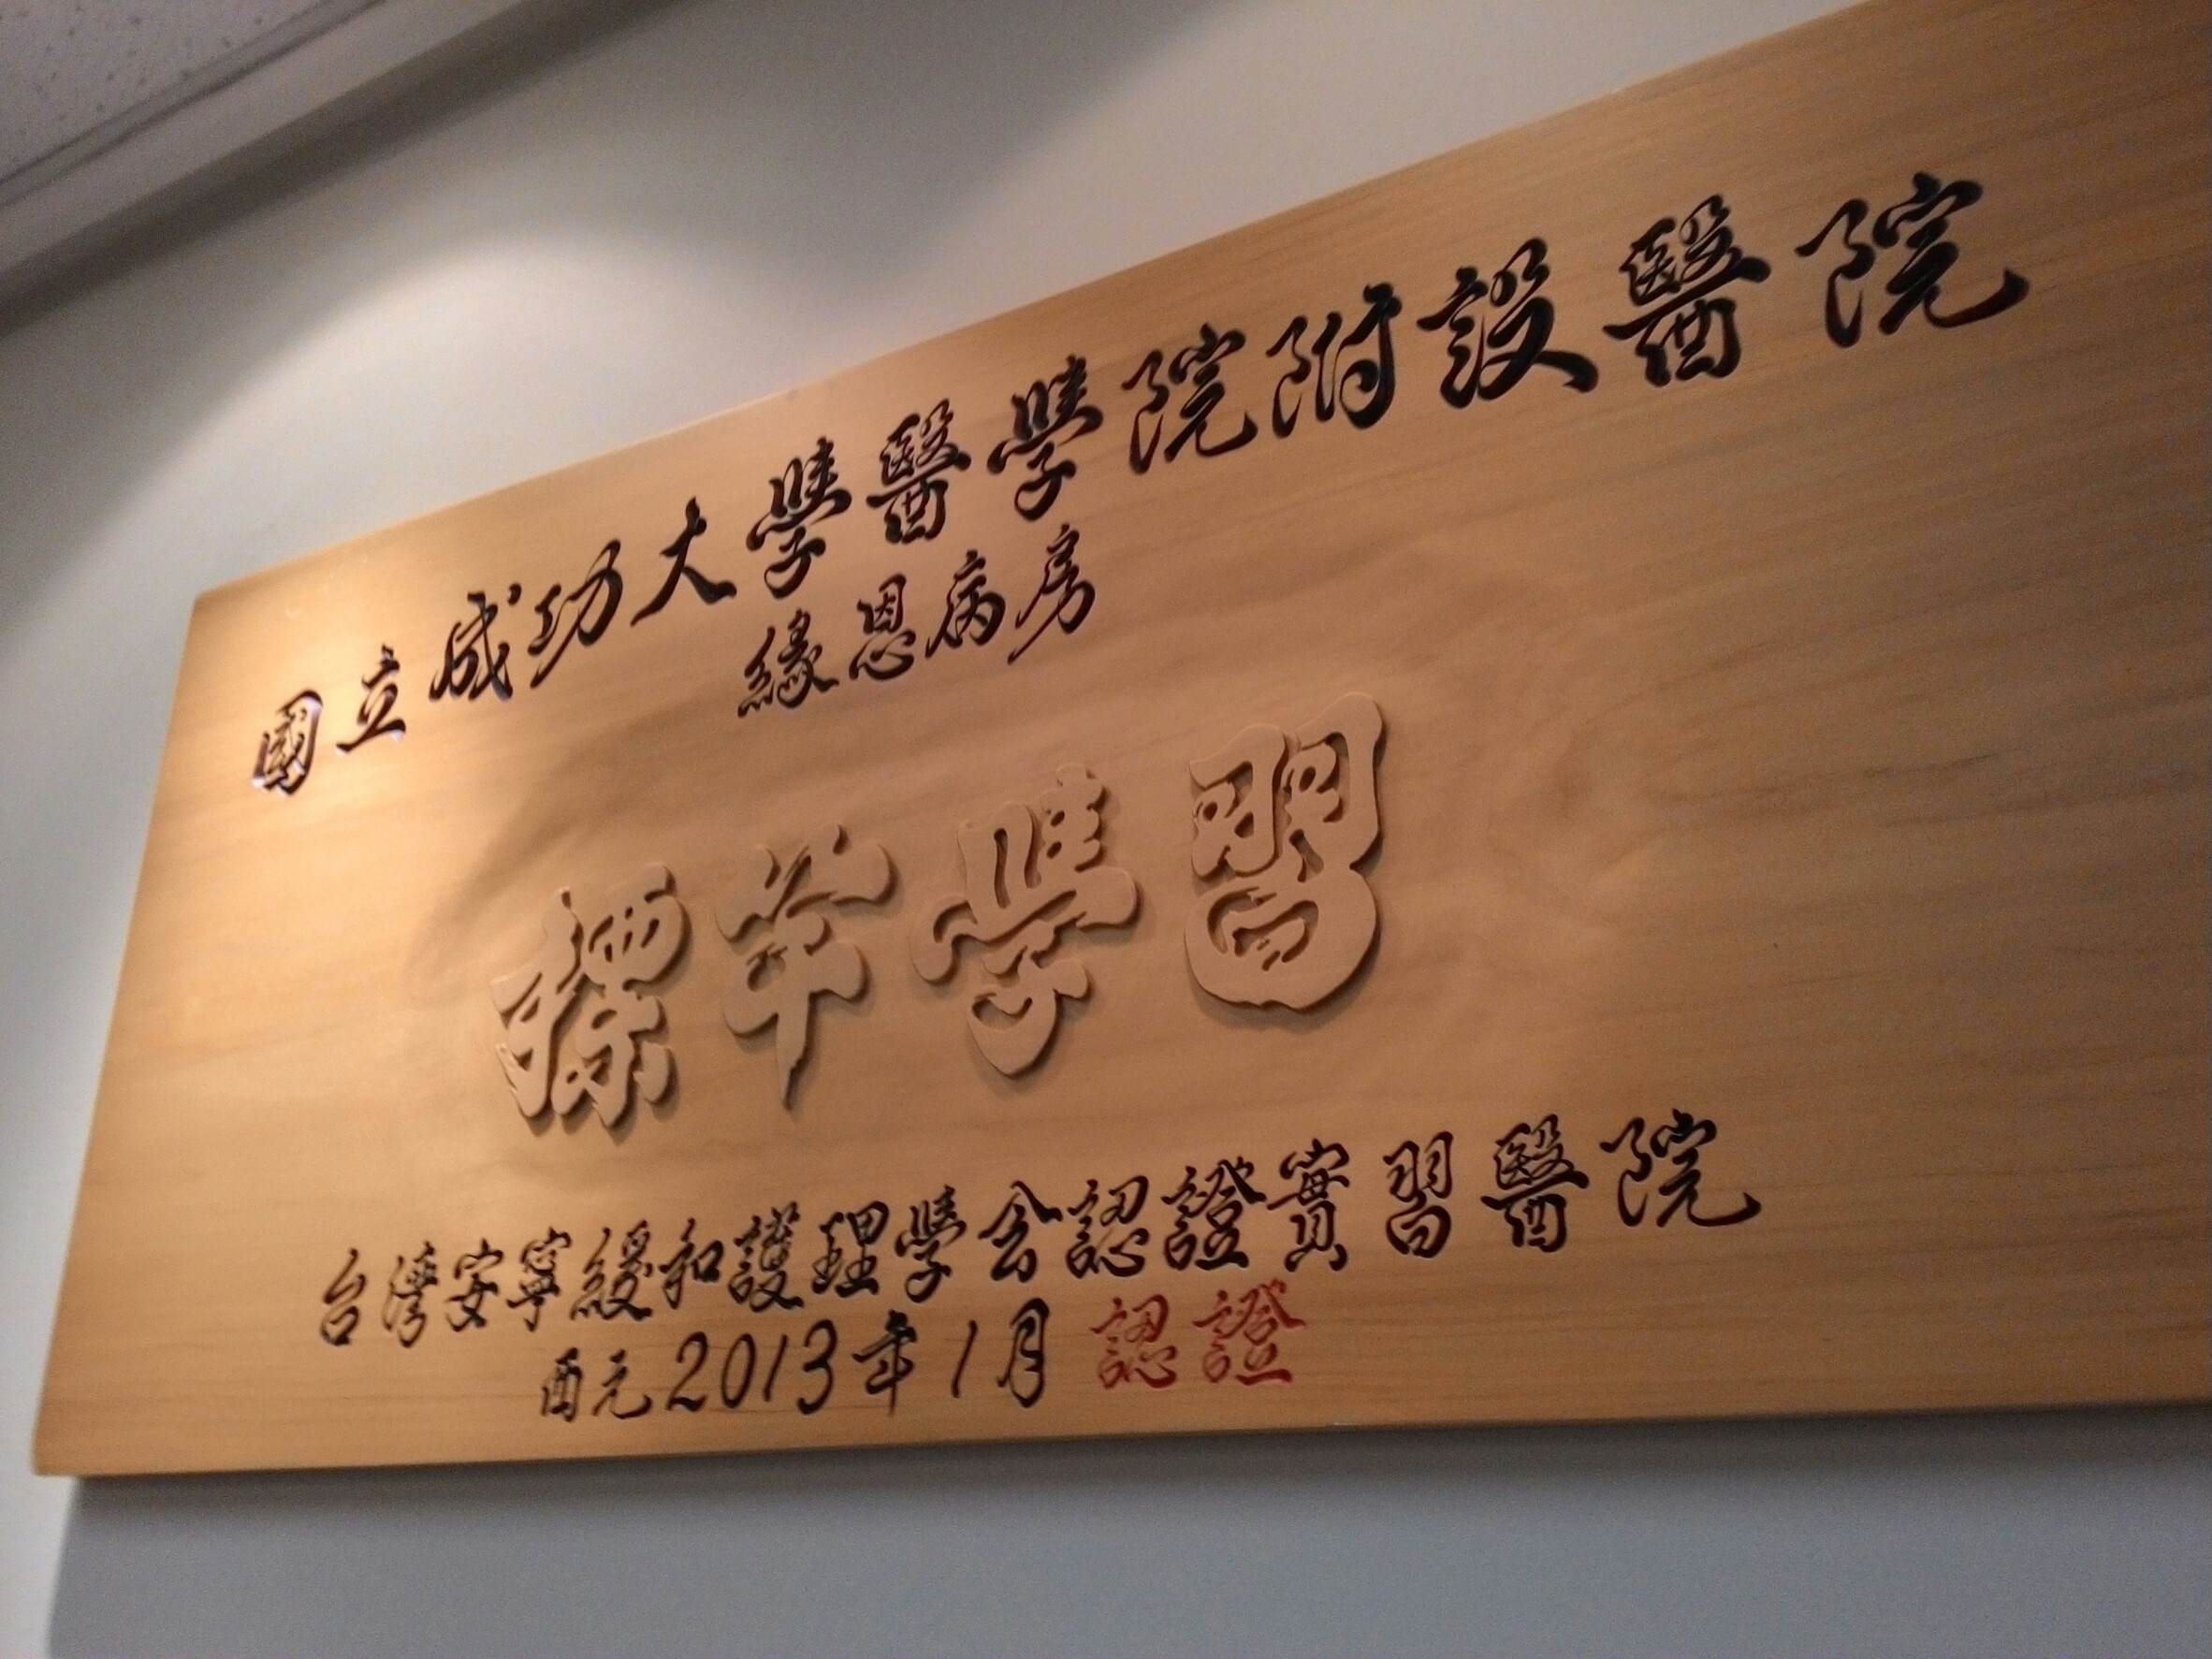 國立成功大學醫學院附設醫院
緣恩病房
標竿學習
台灣安寧緩和護理學會認證實習醫院
西元2013年1月認證